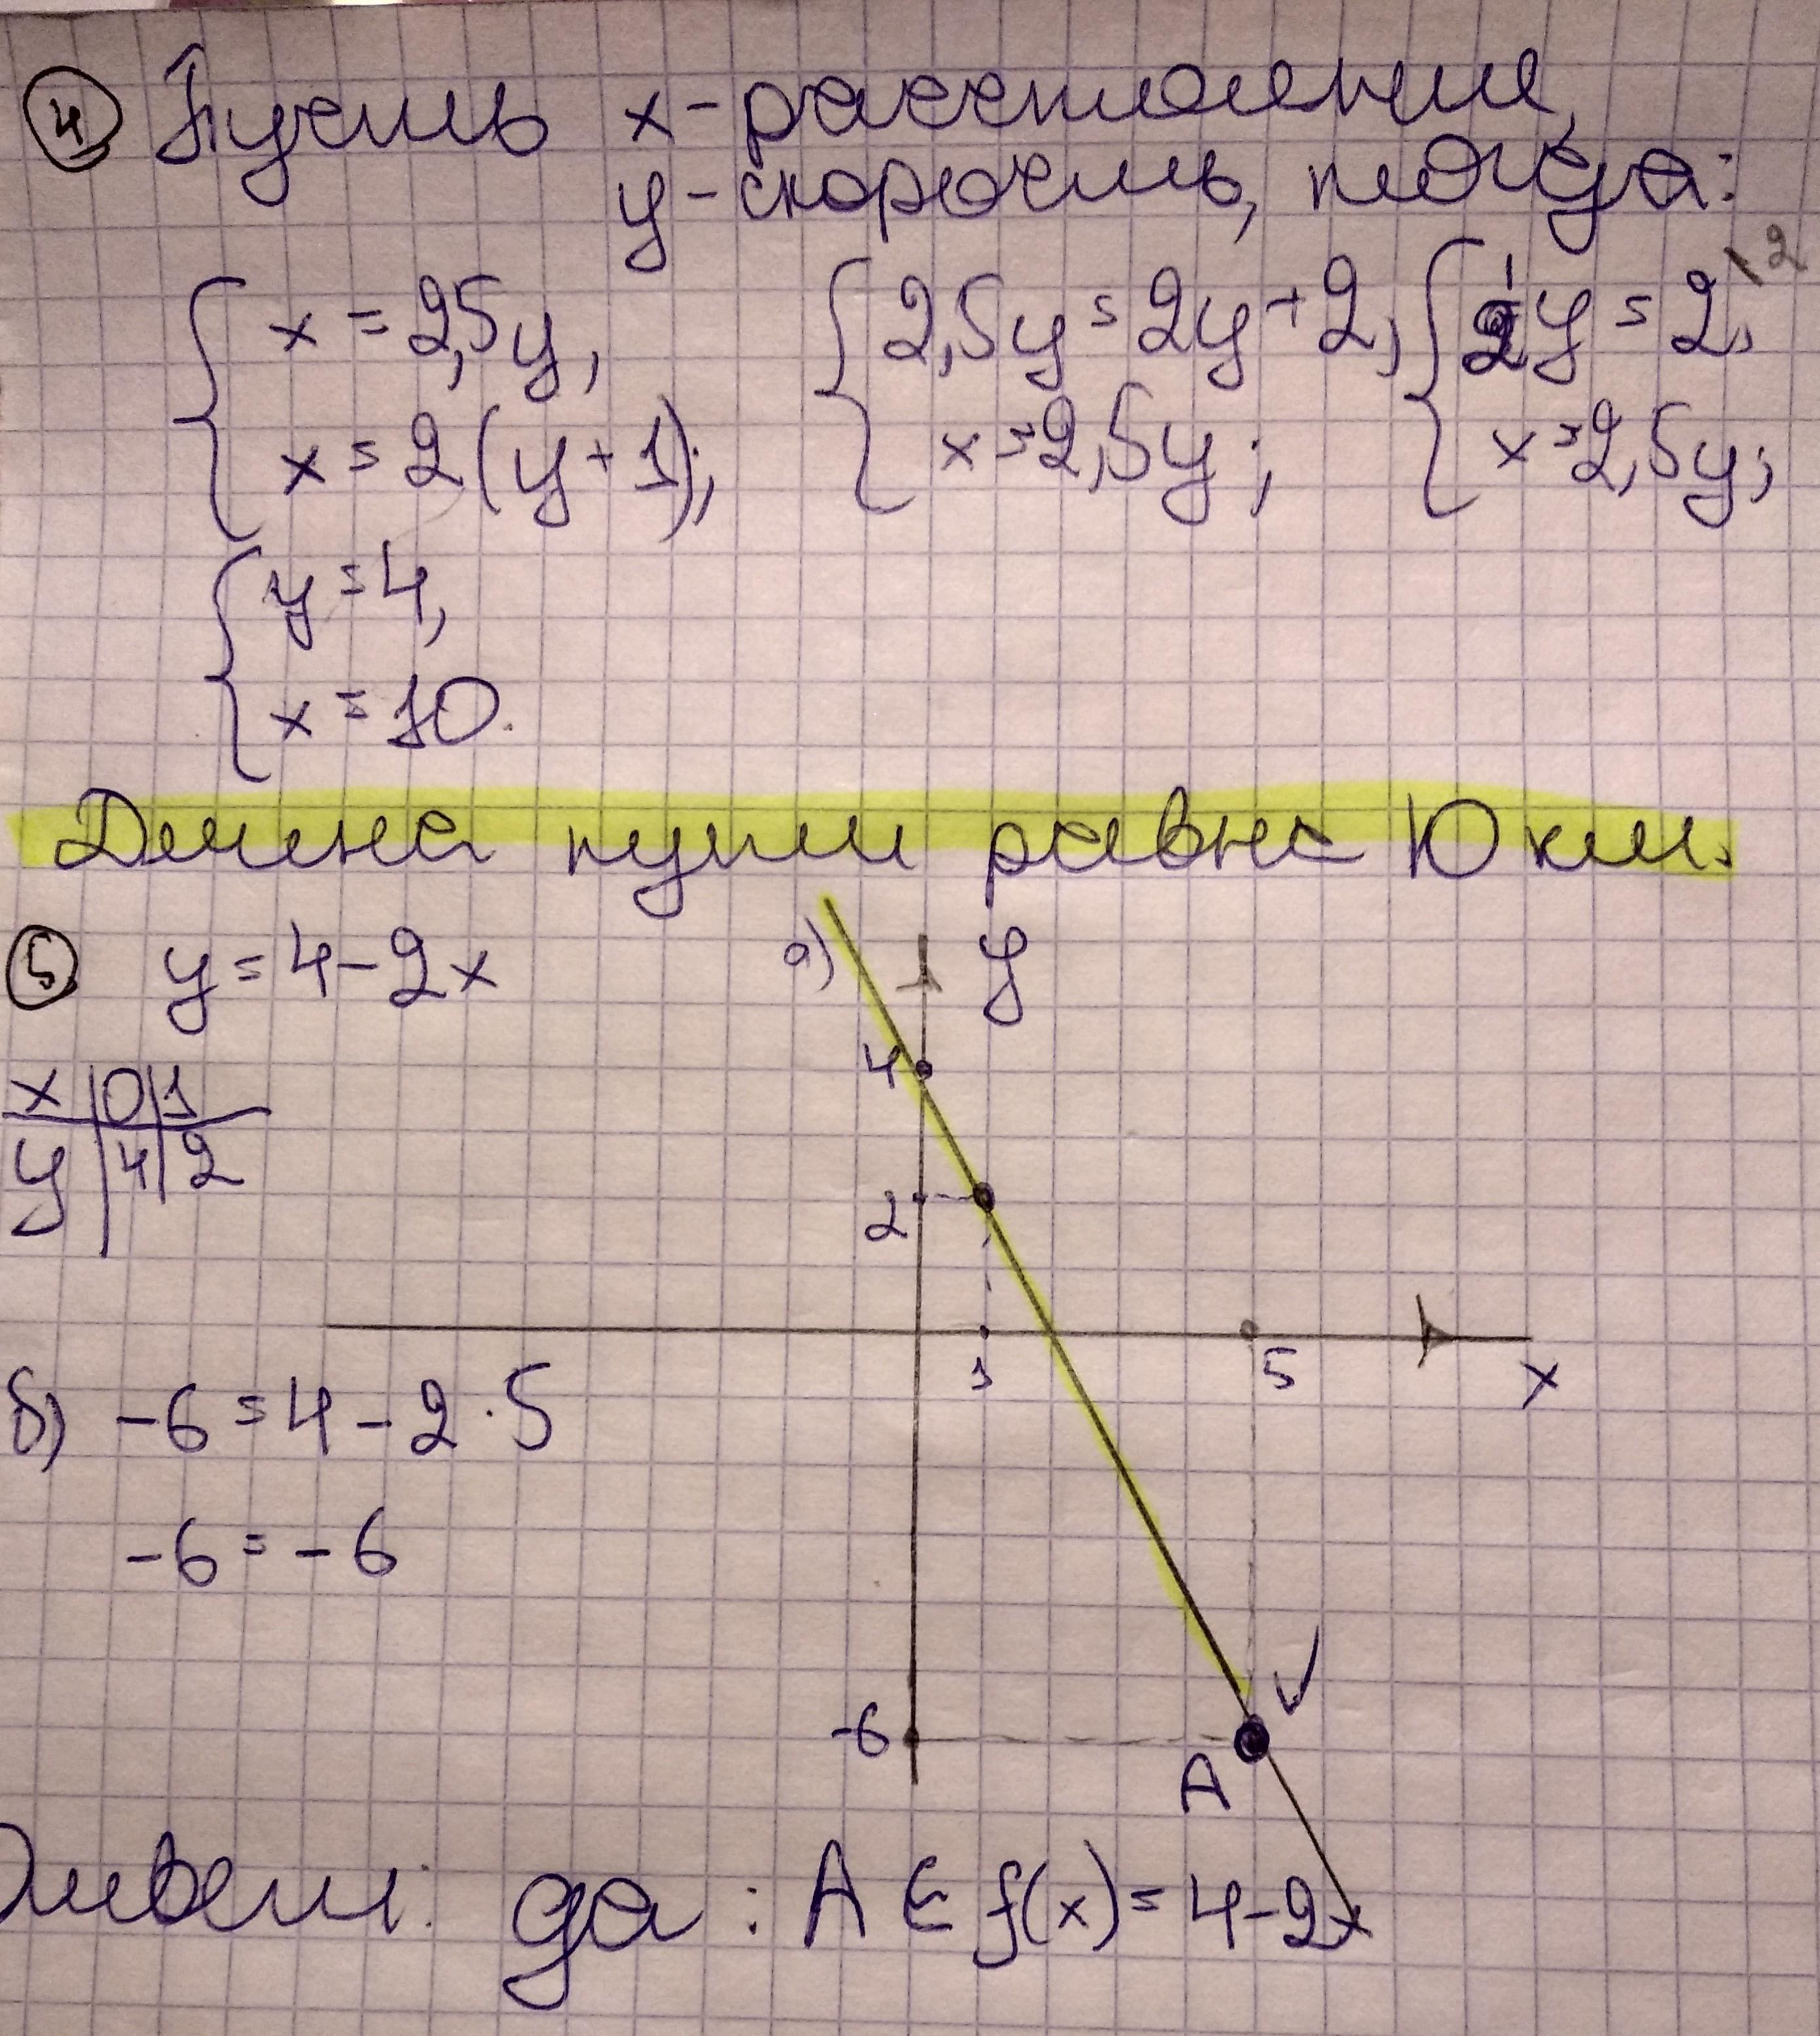 4 Пусть x - расстояние,
y - скорость, тогда:
{ x = 2,5y, { 2,5y = 2y + 2, { 1/2 y = 2, \2
x = 2(y + 1); x = 2,5y; x = 2,5y;
{ y = 4,
x = 10.
Длина пути равна 10 км.
5 y = 4 - 2x а) y
x | 0 | 1 4
y | 4 | 2 2
1 5 x
б) -6 = 4 - 2 · 5
-6 = -6
-6 A
Ответ: да : A ∈ f(x) = 4 - 2x